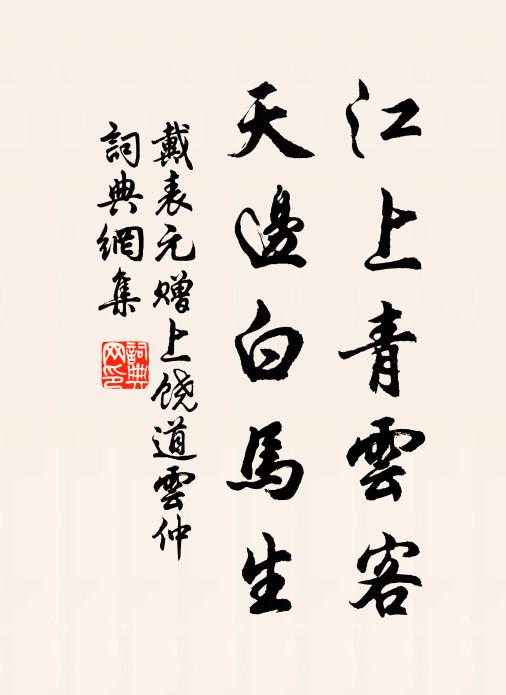 江上青雲客
天邊白馬生
戴表元赠上饶道雲仲
詞典網集
詞典网印